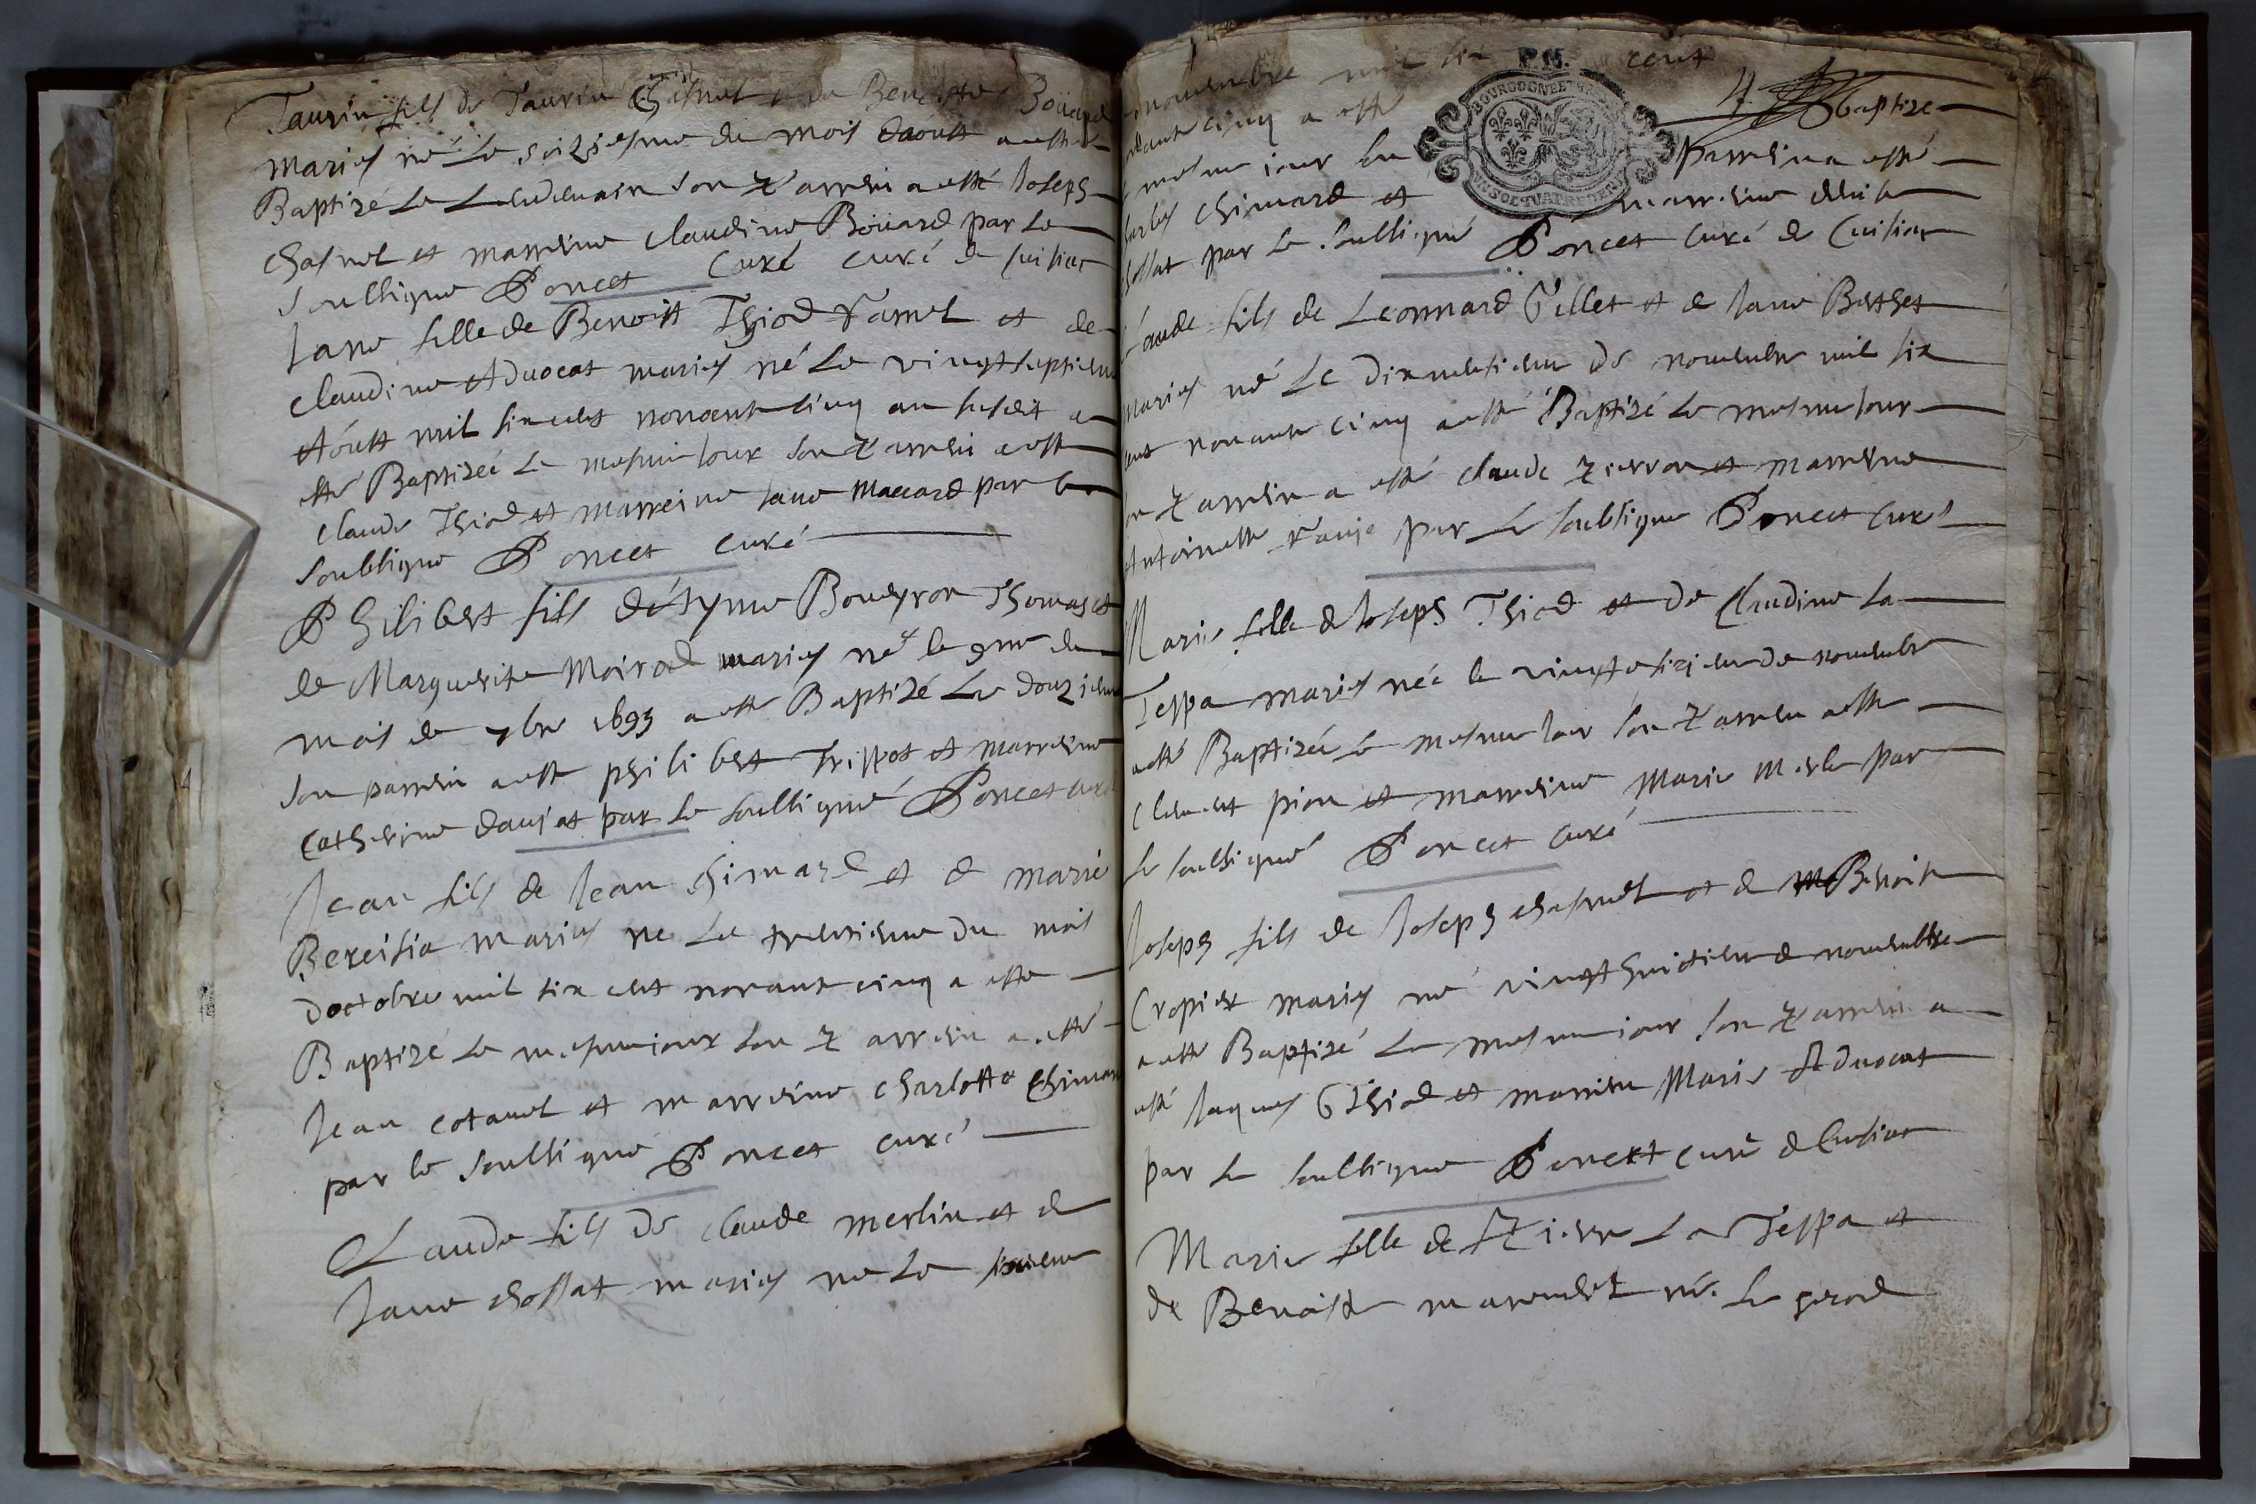 Taurin fils de Taurin Chasnel et de Benoiste Boüard
mariés né le seiziesme du mois daoust a esté
Baptizé le Lendemain son Parrein a esté Joseph
Chasnel et marreine Claudine Boüard par le
soubsigne Poncet Curé curé de Cuisiat
Jane fille de Benoist Thiod Famel et de
Claudine Advocat mariés né le vingt septieme
Aóust mil six cent nonante cinq an susdit a
esté Baptizée le mesme Jour son Parrein a esté
Claude Thiod et Marreine Jane Maccard par le
soubsigne Poncet curé
Philibert fils détynne Boueyron Thomas et
de Marguerite Moirod mariés né le 9me du
mois de 7bre 1695 a esté Baptizé le douzieme
son parrein a esté philibert Trippot et marreine
Catherine daujat par le soubsigné Poncet curé
Jean fils de Jean chimard et de marie
Bereisia mariés ne le treuzieme du mois
doctobre mil six cent nonante cinq a esté
Baptizé le mesme jour son Parrein a esté
Jean cotavel et marreine Charlotte Chimard
par le soubsigne Poncet curé
Claude fils de claude merlin et de
Jane chossat mariés ne le sixieme
novembre mil six cent
nonante cinq a esté baptize
mesme jour son parrein a esté
Charles Chimard et marreine
chossat par le soubsigné Poncet curé de Cuisiat
Claude fils de Leonnard Gillet et de Jane Berthet
mariés né le dixneusieme de novembre mil six
cent nonante cinq a esté Baptizé le mesme Jour
son Parrein a esté claude Pierron et marreine
Antoinette par le soubsigne Poncet curé
Marie fille de Joseph Thiod et de Claudine La
Teppa mariés née le vingt sixieme de novembre
a esté Baptizée le mesme Jour son Parrein a esté
Clement pion et marreine Marie Merle par
le soubsigné Poncet curé
Joseph fils de Joseph chasnel et de Benoite
Cropier mariés né vingt huictieme de novembre
a esté Baptizé le mesme jour son Parrein a
esté Jaques Thiod et marrein Marie Advocat
par le soubsigne Poncet curé de Cuisiat
Marie fille de Pierre La Teppa et
de Benoiste née le second
BOURGOGNE ET